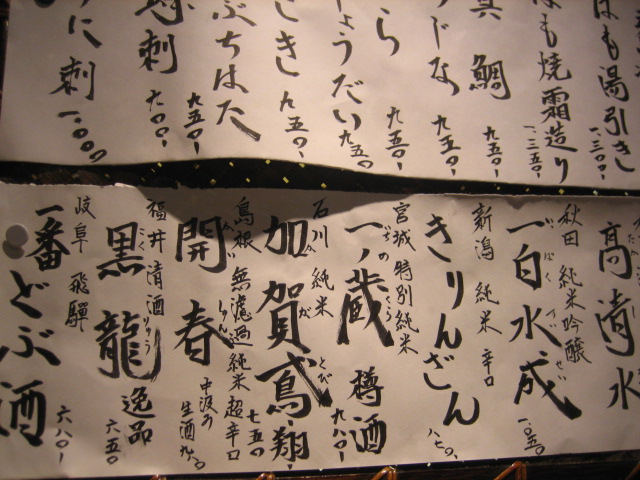 はも湯引き
一、三〇〇、
はも焼霜造り
一、三五〇、
真鯛
九五〇、
うじな
九五〇、
九五〇、
ょうだい
九五〇
九五〇、
ぶちはた
九五〇、
刺
九〇〇、
に刺
一、〇〇〇
高清水
秋田 純米吟醸
一白水成
いっぱくすいせい
一、〇五〇、
新潟 純米 辛口
きりんざん
八七〇、
宮城 特別純米
一ノ蔵 樽酒
いちのくら
九八〇、
石川 純米
加賀鳶・翔
かがとび
七五〇
島根 無濾過純米超辛口
開春
かいしゅん
中汲み
生酒
福井 清酒
黒龍 逸品
こくりゅう
六五〇
岐阜 飛騨
一番どぶ酒
六八〇、